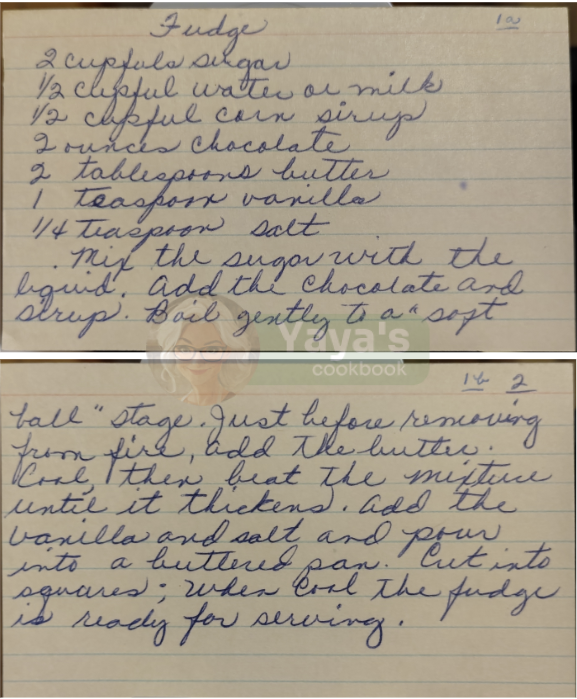 Fudge
1a
2 cupfuls sugar
1/2 cupful water or milk
1/2 cupful corn sirup
2 ounces chocolate
2 tablespoons butter
1 teaspoon vanilla
1/4 teaspoon salt
Mix the sugar with the
liquid. Add the chocolate and
sirup. Boil gently to a "soft
Yaya's
cookbook
1b 2
ball" stage. Just before removing
from fire, add the butter.
Cool, then beat the mixture
until it thickens. Add the
vanilla and salt and pour
into a buttered pan. Cut into
squares; when cool the fudge
is ready for serving.